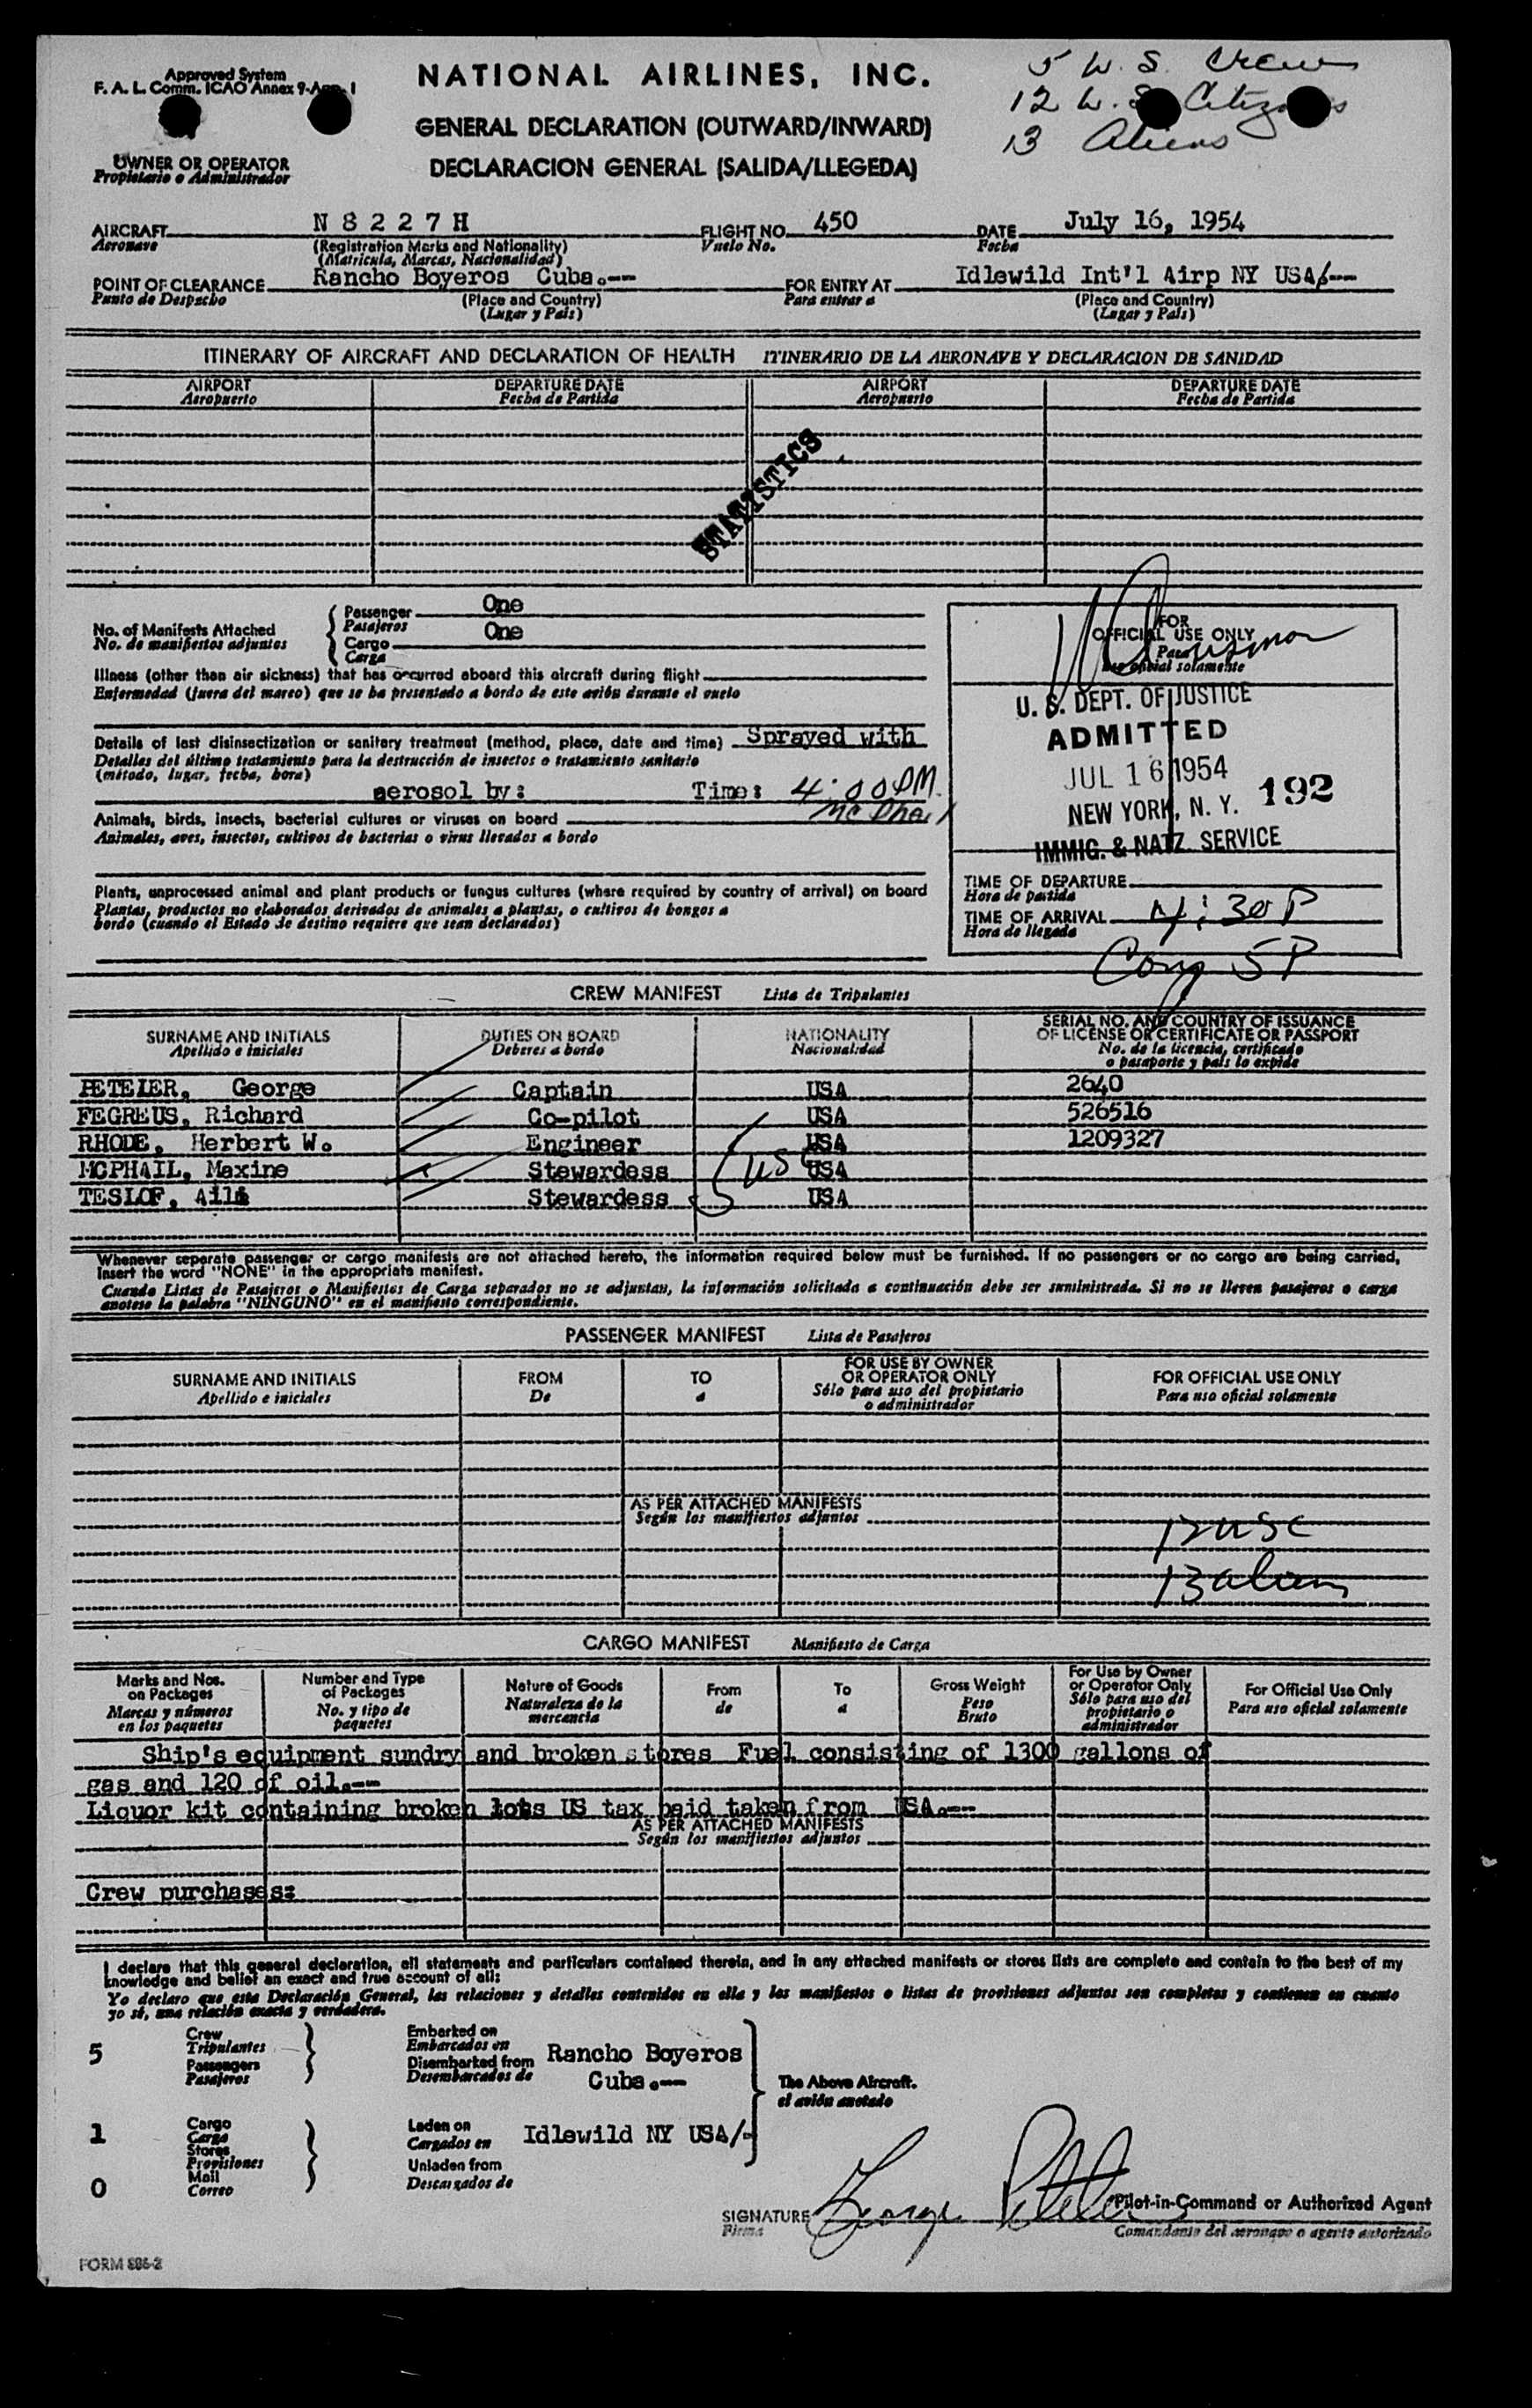 Approved System
F. A. L. Comm. ICAO Annex 9-App. 1
NATIONAL AIRLINES, INC.
5 U.S. Crew
12 U.S. Citizens
13 Aliens
GENERAL DECLARATION (OUTWARD/INWARD)
DECLARACION GENERAL (SALIDA/LLEGEDA)
OWNER OR OPERATOR
Propietario o Administrador
AIRCRAFT N 8 2 2 7 H FLIGHT NO. 450 DATE July 16, 1954
Aeronave (Registration Marks and Nationality) Vuelo No. Fecha
(Matricula, Marcas, Nacionalidad)
POINT OF CLEARANCE Rancho Boyeros Cuba.-- FOR ENTRY AT Idlewild Int'l Airp NY USA/.--
Punto de Despacho (Place and Country) Para entrar a (Place and Country)
(Lugar y Pais) (Lugar y Pais)
ITINERARY OF AIRCRAFT AND DECLARATION OF HEALTH ITINERARIO DE LA AERONAVE Y DECLARACION DE SANIDAD
AIRPORT DEPARTURE DATE AIRPORT DEPARTURE DATE
Aeropuerto Fecha de Partida Aeropuerto Fecha de Partida
STATISTICS
No. of Manifests Attached
No. de manifiestos adjuntos
Passenger One
Pasajeros
Cargo One
Carga
Illness (other than air sickness) that has occurred aboard this aircraft during flight
Enfermedad (fuera del mareo) que se ha presentado a bordo de este avión durante el vuelo
Details of last disinsectization or sanitary treatment (method, place, date and time) Sprayed with
Detalles del último tratamiento para la destrucción de insectos o tratamiento sanitario
(método, lugar, fecha, hora)
aerosol by: Time: 4:00 PM.
McPhail
Animals, birds, insects, bacterial cultures or viruses on board
Animales, aves, insectos, cultivos de bacterias o virus llevados a bordo
Plants, unprocessed animal and plant products or fungus cultures (where required by country of arrival) on board
Plantas, productos no elaborados derivados de animales a plantas, o cultivos de hongos a
bordo (cuando el Estado de destino requiere que sean declarados)
FOR
OFFICIAL USE ONLY
Para
uso oficial solamente
U. S. DEPT. OF JUSTICE
ADMITTED
JUL 16 1954 192
NEW YORK, N. Y.
IMMIG. & NATZ. SERVICE
TIME OF DEPARTURE
Hora de partida
TIME OF ARRIVAL 4:30P
Hora de llegada
5P
CREW MANIFEST Lista de Tripulantes
SURNAME AND INITIALS DUTIES ON BOARD NATIONALITY SERIAL NO. AND COUNTRY OF ISSUANCE
Apellido e iniciales Deberes a bordo Nacionalidad OF LICENSE OR CERTIFICATE OR PASSPORT
No. de la licencia, certificado
o pasaporte y pais lo expide
PETELER, George Captain USA 2640
FEGREUS, Richard Co-pilot USA 526516
RHODE, Herbert W. Engineer USA 1209327
MCPHAIL, Maxine Stewardess USC USA
TESLOF, Aili Stewardess USA
Whenever separate passenger or cargo manifests are not attached hereto, the information required below must be furnished. If no passengers or no cargo are being carried,
Insert the word "NONE" in the appropriate manifest.
Cuando Listas de Pasajeros o Manifiestos de Carga separados no se adjuntan, la información solicitada a continuación debe ser suministrada. Si no se lleven pasajeros o carga
anotese la palabra "NINGUNO" en el manifiesto correspondiente.
PASSENGER MANIFEST Lista de Pasajeros
SURNAME AND INITIALS FROM TO FOR USE BY OWNER OR OPERATOR ONLY FOR OFFICIAL USE ONLY
Apellido e iniciales De a Sólo para uso del propietario o administrador Para uso oficial solamente
AS PER ATTACHED MANIFESTS
Según los manifiestos adjuntos
12 USC
13 aliens
CARGO MANIFEST Manifiesto de Carga
Marks and Nos. on Packages Number and Type of Packages Nature of Goods From To Gross Weight For Use by Owner or Operator Only For Official Use Only
Marcas y números en los paquetes No. y tipo de paquetes Naturaleza de la mercancia de a Peso Bruto Sólo para uso del propietario o administrador Para uso oficial solamente
Ship's equipment sundry and broken stores Fuel consisting of 1300 gallons of
gas and 120 of oil.--
Liquor kit containing broken lots US tax paid taken from USA.--
AS PER ATTACHED MANIFESTS
Según los manifiestos adjuntos
Crew purchases:
I declare that this general declaration, all statements and particulars contained therein, and in any attached manifests or stores lists are complete and contain to the best of my
knowledge and belief an exact and true account of all:
Yo declaro que esta Declaración General, las relaciones y detalles contenidos en ella y los manifiestos o listas de provisiones adjuntos son completos y contienen en cuanto
yo sé, una relación exacta y verdadera.
5 Crew Embarked on
Tripulantes Embarcados en Rancho Boyeros
Passengers Disembarked from
Pasajeros Desembarcados de Cuba.--
The Above Aircraft.
el avión anotado
1 Cargo Laden on
Carga Cargados en Idlewild NY USA/.
Stores
Provisiones Unladen from
0 Mail Descargados de
Correo
SIGNATURE George Peteler Pilot-in-Command or Authorized Agent
Firma Comandante del aeronave o agente autorizado
FORM 886-2